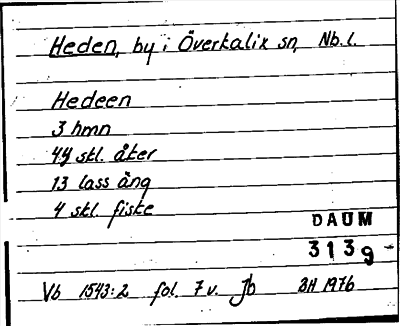 Heden, by i Överkalix sn, Nb.l.
Hedeen
3 hmn
44 skl. åker
13 lass äng
4 skl. fiske
DAUM
3139
Vb 1543:2 fol. 7v. Jb BH 1976